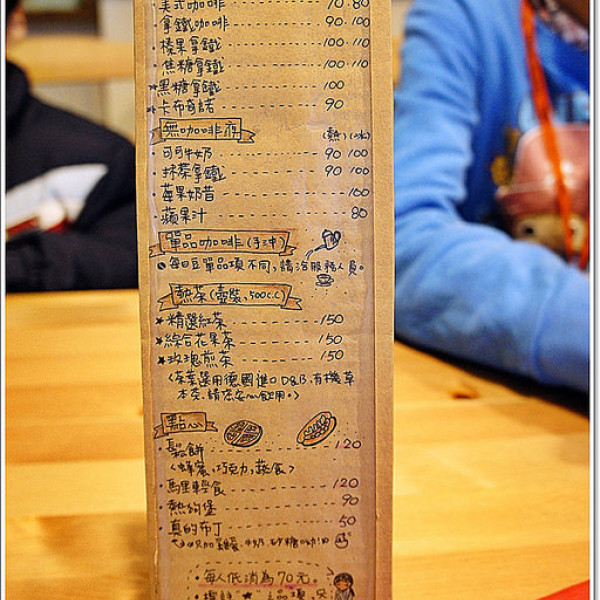 美式咖啡 70·80
拿鐵咖啡 90·100
榛果拿鐵 100·110
焦糖拿鐵 100·110
★黑糖拿鐵 100
★卡布奇諾 90
無咖啡因 (熱)(冰)
·可可牛奶 90 100
·抹茶拿鐵 90 100
·莓果奶昔 100
·蘋果汁 80
單品咖啡(手沖)
每日豆單品項不同,請洽服務人員。
熱茶(壺裝,500c.c)
★精選紅茶 150
★綜合花果茶 150
★玫瑰煎茶 150
〈茶葉選用德國進口D&B,有機草
本茶,請安心飲用。〉
點心
·鬆餅 120
〈蜂蜜,巧克力,蔬食〉
·馬里輕食 120
·熱狗堡 90
·真的布丁 50
只加雞蛋,牛奶,砂糖呦!
·每人低消為70元。
·標註"★"之品項,